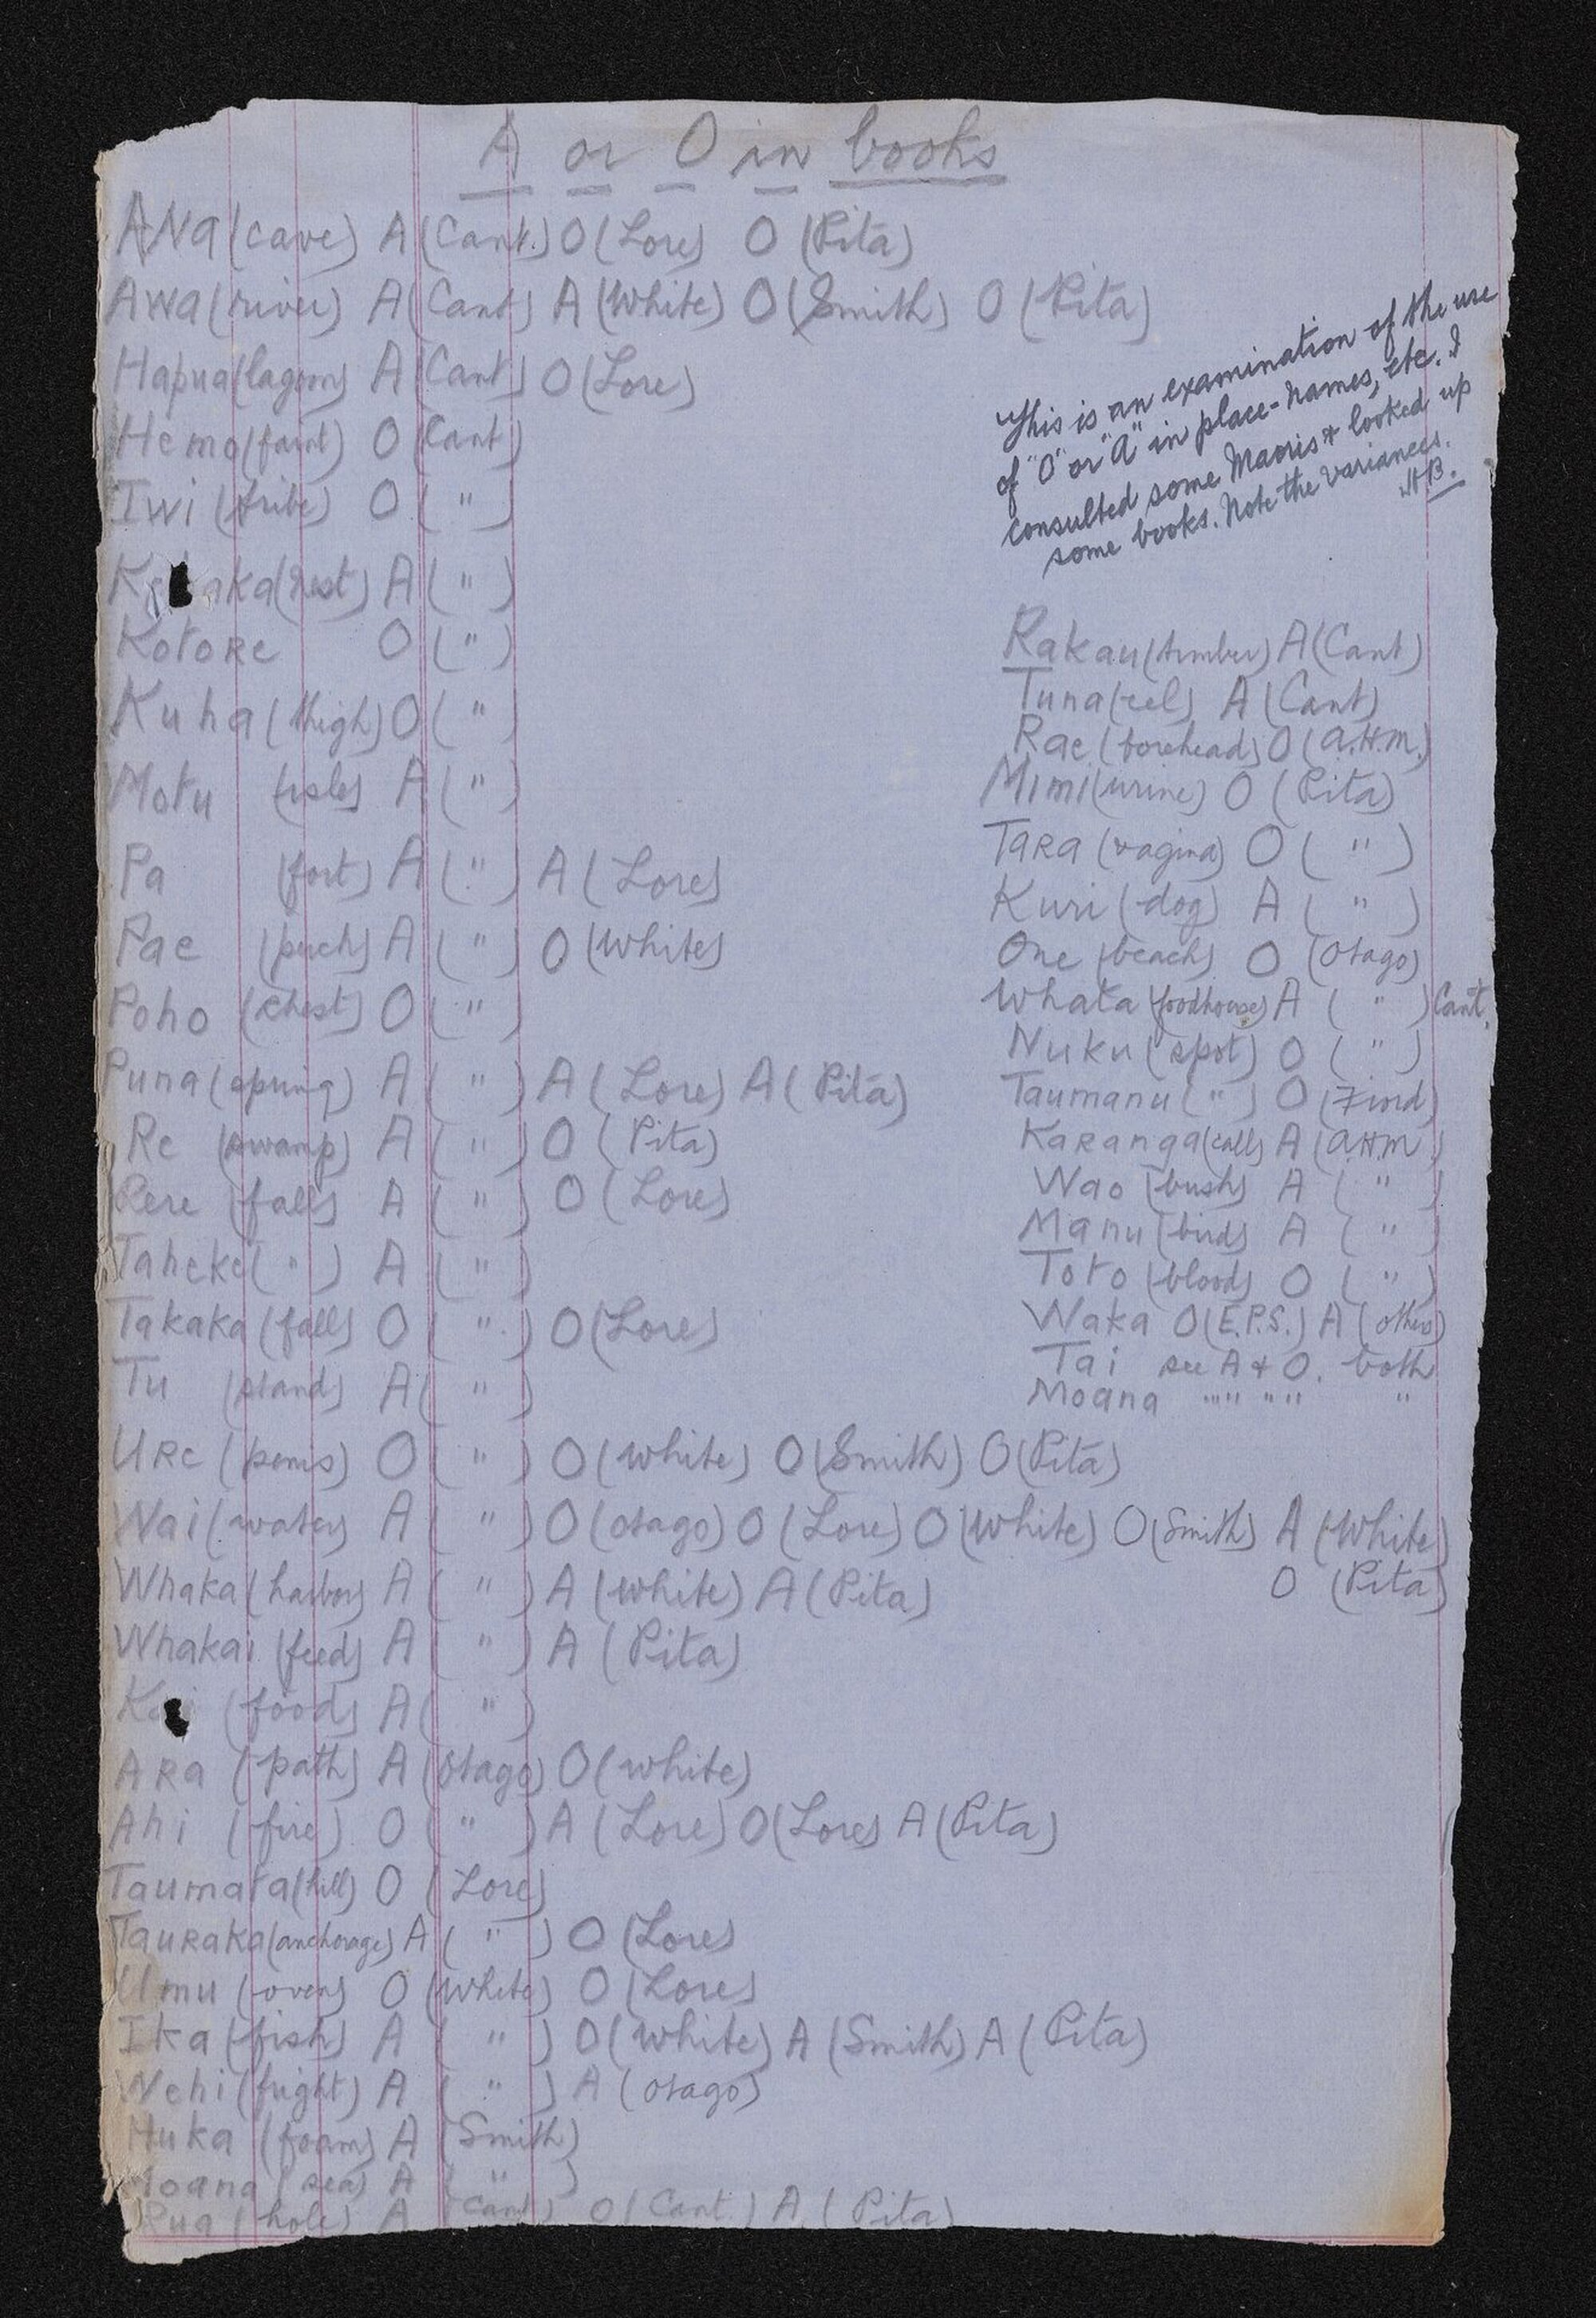 A or O in books
Ana (cave) A (Cant.) O (Lore) O (Pita)
Awa (river) A (Cant) A (White) O (Smith) O (Pita)
Hapua (lagoon) A (Cant) O (Lore)
Hemo (faint) O (Cant)
Iwi (tribe) O ( " )
aka (nest) A ( " )
Kotore O ( " )
Kuha (thigh) O ( " )
Motu (isle) A ( " )
Pa (fort) A ( " ) A (Lore)
Pae (perch) A ( " ) O (White)
Poho (chest) O ( " )
Puna (spring) A ( " ) A (Lore) A (Pita)
Re (swamp) A ( " ) O (Pita)
Rere (falls) A ( " ) O (Lore)
Taheke ( " ) A ( " )
Takaka (falls) O ( " ) O (Lore)
Tu (stand) A ( " )
Ure (penis) O ( " ) O (White) O (Smith) O (Pita)
Wai (water) A ( " ) O (Otago) O (Lore) O (White) O (Smith) A (White)
O (Pita)
Whaka (harbor) A ( " ) A (White) A (Pita)
Whakai (feed) A ( " ) A (Pita)
Kai (food) A ( " )
Ara (path) A (Otago) O (White)
Ahi (fire) O ( " ) A (Lore) O (Lore) A (Pita)
Taumata (hill) O (Lore)
Tauraka (anchorage) A ( " ) O (Lore)
Umu (oven) O (White) O (Lore)
Ika (fish) A ( " ) O (White) A (Smith) A (Pita)
Wehi (fright) A ( " ) A (Otago)
Huka (foam) A (Smith)
Moana (sea) A ( " )
Rua (hole) A (Cant) O (Cant.) A (Pita)
This is an examination of the use
of "O" or "A" in place-names, etc. I
consulted some Maoris & looked up
some books. Note the variances.
H.B.
Rakau (timber) A (Cant)
Tuna (eel) A (Cant)
Rae (forehead) O (A.H.M.)
Mimi (urine) O (Pita)
Tara (vagina) O ( " )
Kuri (dog) A ( " )
One (beach) O (Otago)
Whata (foodhouse) A ( " ) Cant.
Nuku (spot) O ( " )
Taumanu ( " ) O (Fiord)
Karanga (call) A (A.H.M.)
Wao (bush) A ( " )
Manu (bird) A ( " )
Toto (blood) O ( " )
Waka O (E.P.S.) A (others)
Tai see A & O. both
Moana " " " " "